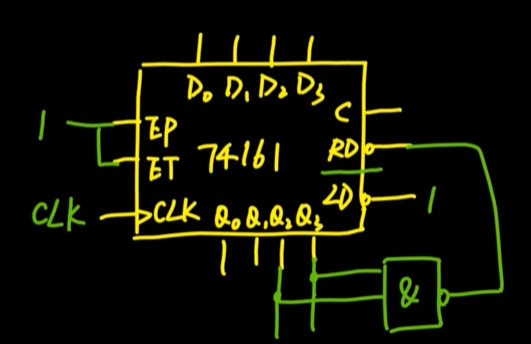 D0 D1 D2 D3
C
1 EP
ET 74161 RD
LD 1
CLK CLK Q0 Q1 Q2 Q3
&